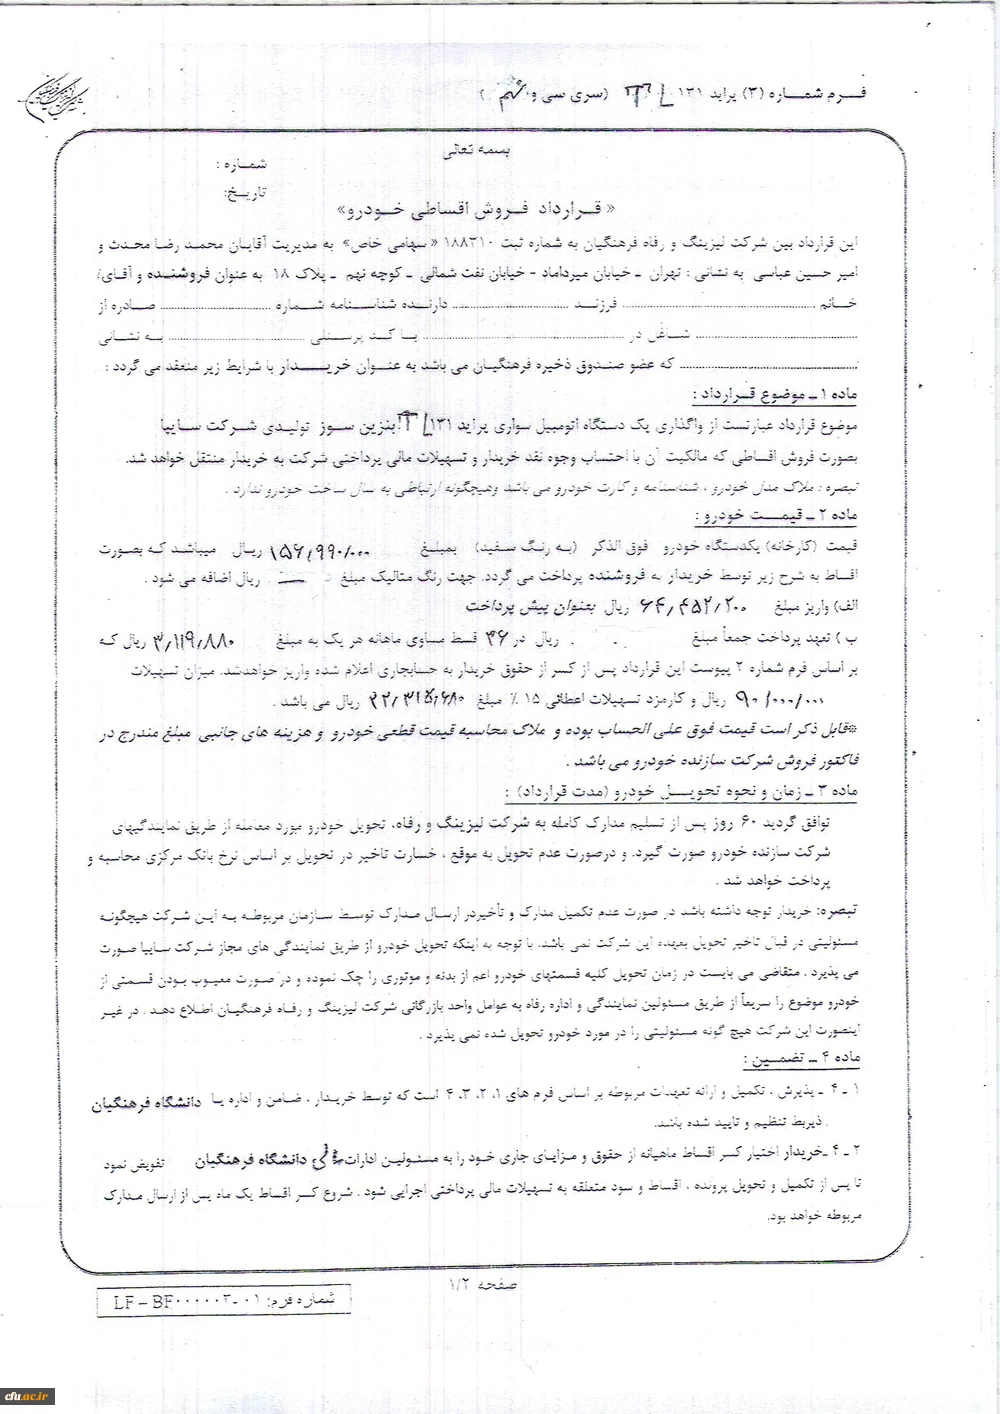 فـــرم شمـــاره (۳) پراید ۱۳۱ TL (سری سی و ششم)
بسمه تعالی
شمـاره :
تاریـخ:
« قــرارداد فــروش اقســاطی خــودرو»
این قرارداد بین شرکت لیزینگ و رفاه فرهنگیان به شماره ثبت ۱۸۸۳۱۰ «سهامی خاص» به مدیریت آقایان محمـد رضـا محـدث و
امیر حسین عباسی به نشانی : تهران ـ خیابان میرداماد - خیابان نفت شمالی ـ کوچه نهم ـ پلاک ۱۸ به عنوان فروشنـده و آقـای/
خــانم ........................ فرزنــد ........................ دارنـده شناسـنامه شمـاره ........................ صـادره از
........................ شـاغل در ........................ بـا کـد پرسـنلی ........................ بـه نشـانی
........................ که عضو صنـدوق ذخیره فرهنگیـان می باشد به عنـوان خریـدار با شرایط زیر منعقد می گردد :
ماده ۱ ـ موضوع قـرارداد :
موضوع قرارداد عبارتست از واگذاری یک دستگاه اتومبیل سواری پراید ۱۳۱ TL بنزین سـوز تولیـدی شـرکت سـایپا
بصورت فروش اقساطی که مالکیت آن با احتساب وجوه نقد خریدار و تسهیلات مالی پرداختی شرکت به خریدار منتقل خواهد شد.
تبصره : ملاک مدل خودرو ، شناسنامه و کارت خودرو می باشد وهیچگونه ارتباطی به سال ساخت خودرو ندارد .
ماده ۲ ـ قیمـت خودرو :
قیمت (کارخانه) یکدستگاه خودرو فوق الذکر (بـه رنـگ سـفید) بمبلـغ ۱۵۶,۹۹۰/۰۰۰ ریـال میباشـد کـه بصـورت
اقساط به شرح زیر توسط خریدار به فروشنده پرداخت می گردد. جهت رنگ متالیک مبلغ ـــ ریال اضافه می شود .
الف) واریز مبلغ ۶۴,۴۵۲,۲۰۰ ریال بعنوان پیش پرداخت
ب ) تعهد پرداخت جمعاً مبلغ ریال در ۳۶ قسط مساوی ماهانه هر یک به مبلـغ ۳,۱۱۹,۸۸۰ ریال کـه
بر اساس فرم شماره ۲ پیوست این قرارداد پس از کسر از حقوق خریدار به حسابجاری اعلام شده واریز خواهدشد. میزان تسهیلات
۹۰/۰۰۰/۰۰۰ ریال و کارمزد تسهیلات اعطائی ۱۵ ٪ مبلغ ۲۲,۳۱۵,۶۸۰ ریال می باشد .
*قابل ذکر است قیمت فوق علی الحساب بوده و ملاک محاسبه قیمت قطعی خودرو و هزینه های جانبی مبلغ مندرج در
فاکتور فروش شرکت سازنده خودرو می باشد .
ماده ۳ ـ زمان و نحوه تحویـل خودرو (مدت قرارداد) :
توافق گردید ۶۰ روز پس از تسلیم مدارک کامله به شرکت لیزینگ و رفاه، تحویل خودرو مورد معامله از طریق نمایندگیهای
شرکت سازنده خودرو صورت گیرد. و درصورت عدم تحویل به موقع ، خسارت تاخیر در تحویل بر اساس نرخ بانک مرکزی محاسبه و
پرداخت خواهد شد .
تبصره: خریدار توجه داشته باشد در صورت عدم تکمیل مدارک و تأخیردر ارسـال مـدارک توسـط سـازمان مربوطـه بـه ایـن شـرکت هیچگونـه
مسئولیتی در قبال تاخیر تحویل بعهده این شرکت نمی باشد. با توجه به اینکه تحویل خودرو از طریق نمایندگی های مجاز شـرکت سـایپا صـورت
می پذیرد . متقاضی می بایست در زمان تحویل کلیه قسمتهای خودرو اعم از بدنه و موتوری را چک نموده و در صورت معیوب بـودن قسـمتی از
خودرو موضوع را سریعاً از طریق مسئولین نمایندگی و اداره رفاه به عوامل واحد بازرگانی شرکت لیزینگ و رفـاه فرهنگیـان اطـلاع دهـد . در غیـر
اینصورت این شرکت هیچ گونه مسئولیتی را در مورد خودرو تحویل شده نمی پذیرد .
ماده ۴ ـ تضمین :
۱ ـ ۴ ـ پذیرش ، تکمیل و ارائه تعهدات مربوطه بر اساس فرم های ۱، ۲، ۳، ۴ است که توسط خریـدار ، ضـامن و اداره یـا دانشگاه فرهنگیان
ذیربط تنظیم و تایید شده باشد.
۲ ـ ۴ ـ خریدار اختیار کسر اقساط ماهیانه از حقوق و مزایـای جاری خـود را به مسئولیـن ادارات دانشگاه فرهنگیان تفویض نمود
تا پس از تکمیل و تحویل پرونده ، اقساط و سود متعلقه به تسهیلات مالی پرداختی اجرایی شود . شروع کسر اقساط یک ماه پس از ارسال مـدارک
مربوطه خواهد بود.
صفحه ۱/۲
شماره فرم: LF – BF۰۰۰۰۰۳-۰۱
cfu.ac.ir